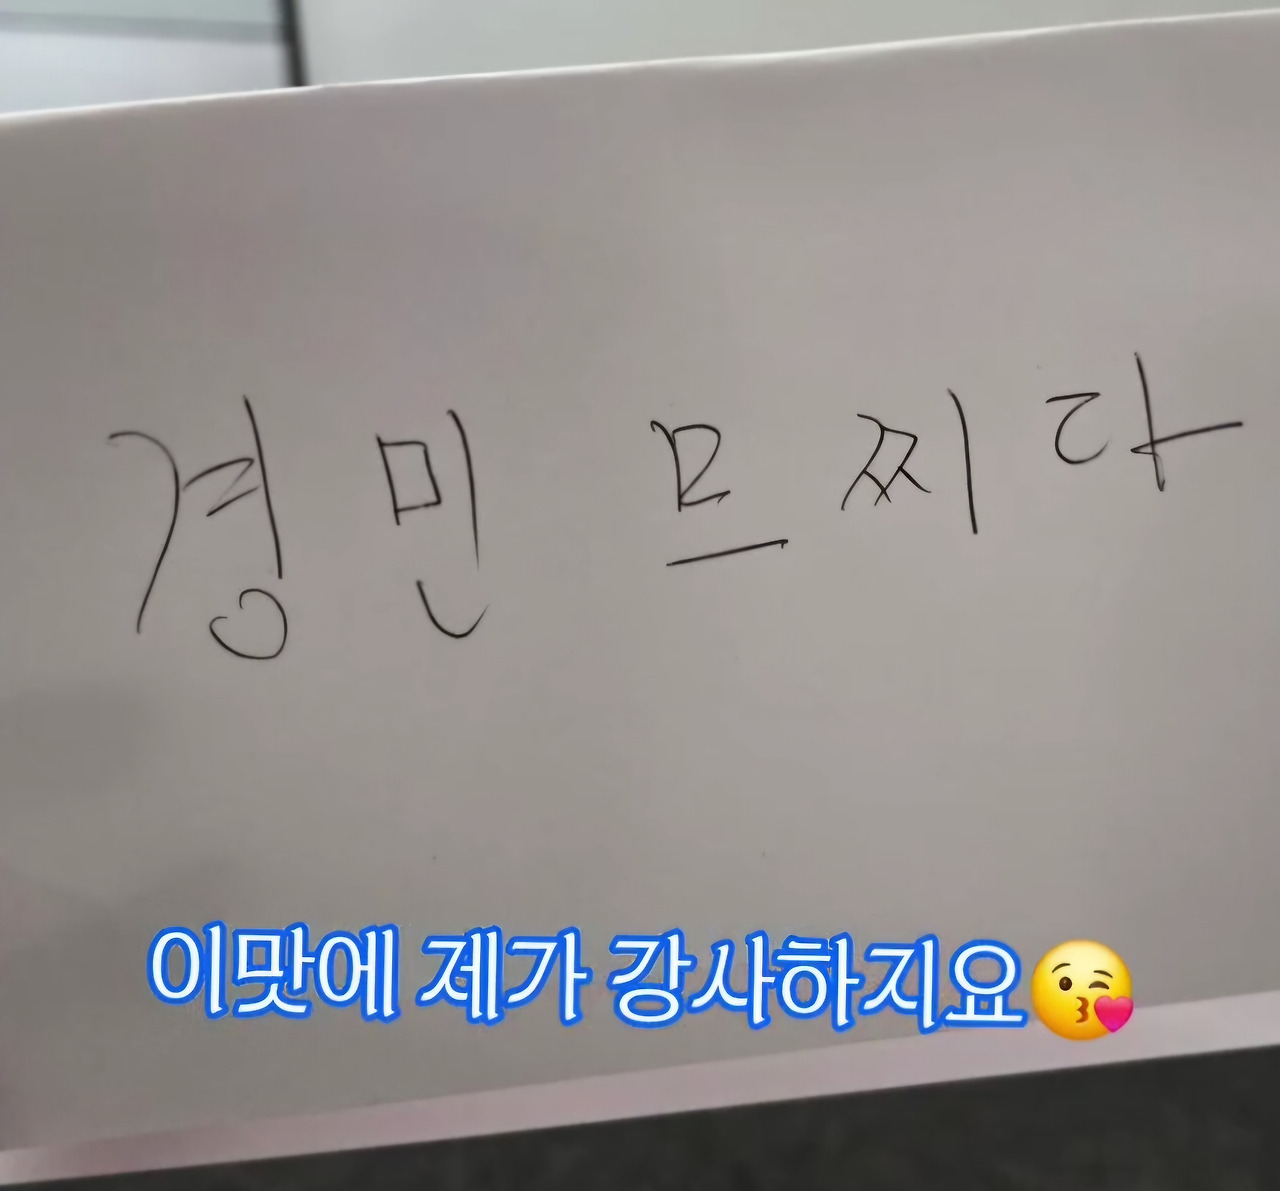 경민 므찌다
이맛에 제가 강사하지요😘